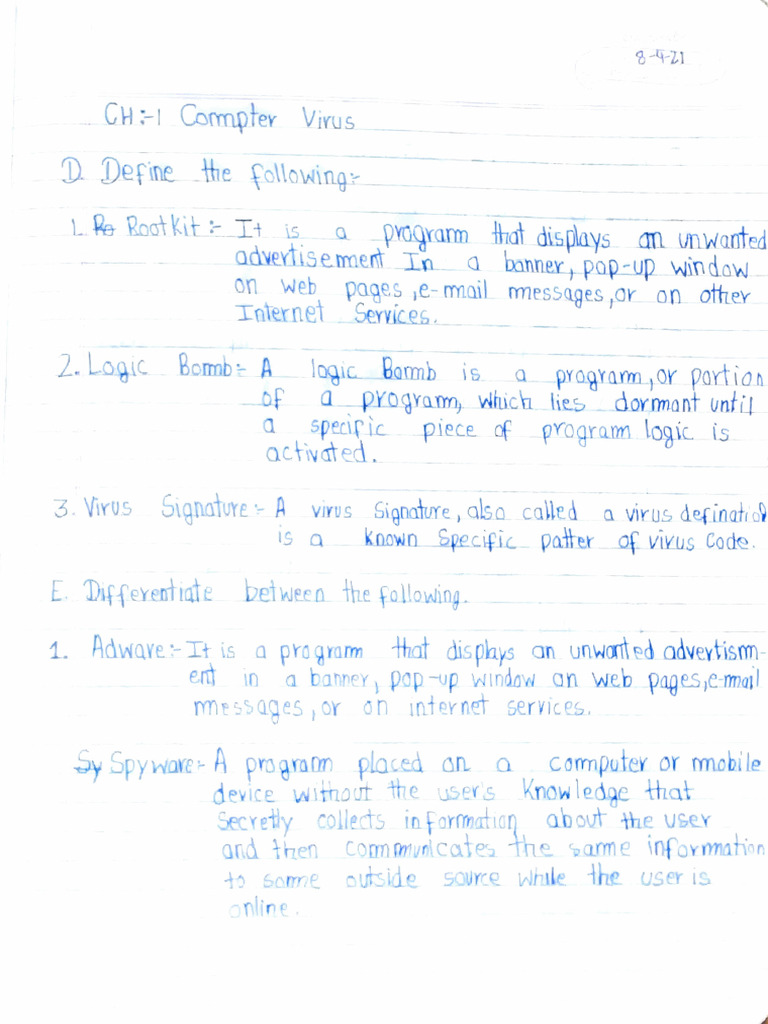 8-4-21
CH:-1 Commpter Virus
D. Define the following:-
1. RootKit:- It is a program that displays an unwanted
advertisement In a banner, pop-up window
on web pages, e-mail messages, or on other
Internet Services.
2. Logic Bomb:- A logic Bomb is a program, or portion
of a program, which lies dormant until
a specific piece of program logic is
activated.
3. Virus Signature:- A virus signature, also called a virus defination
is a known Specific patter of virus Code.
E. Differentiate between the following.
1. Adware:- It is a program that displays an unwanted advertismm-
ent in a banner, pop-up window on web pages, e-mail
messages, or on internet services.
Sy Spyware:- A program placed on a computer or mobile
device without the user's Knowledge that
Secretly collects information about the user
and then communicates the same information
to some outside source while the user is
online.